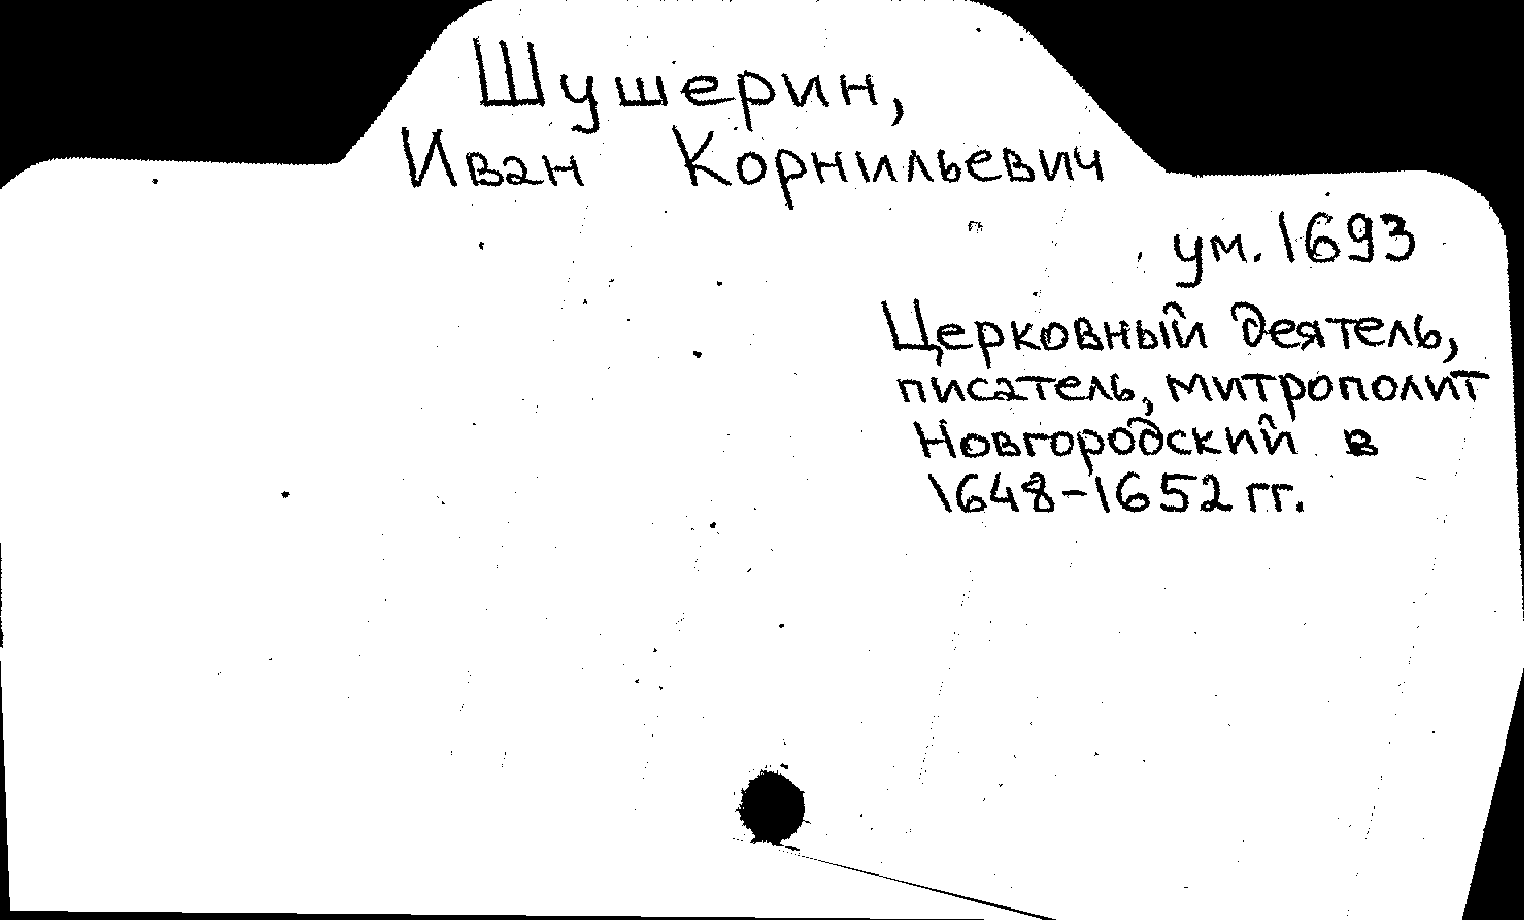 Шушерин,
Иван Корнильевич
ум. 1693
Церковный деятель,
писатель, митрополит
Новгородский в
1648-1652 гг.